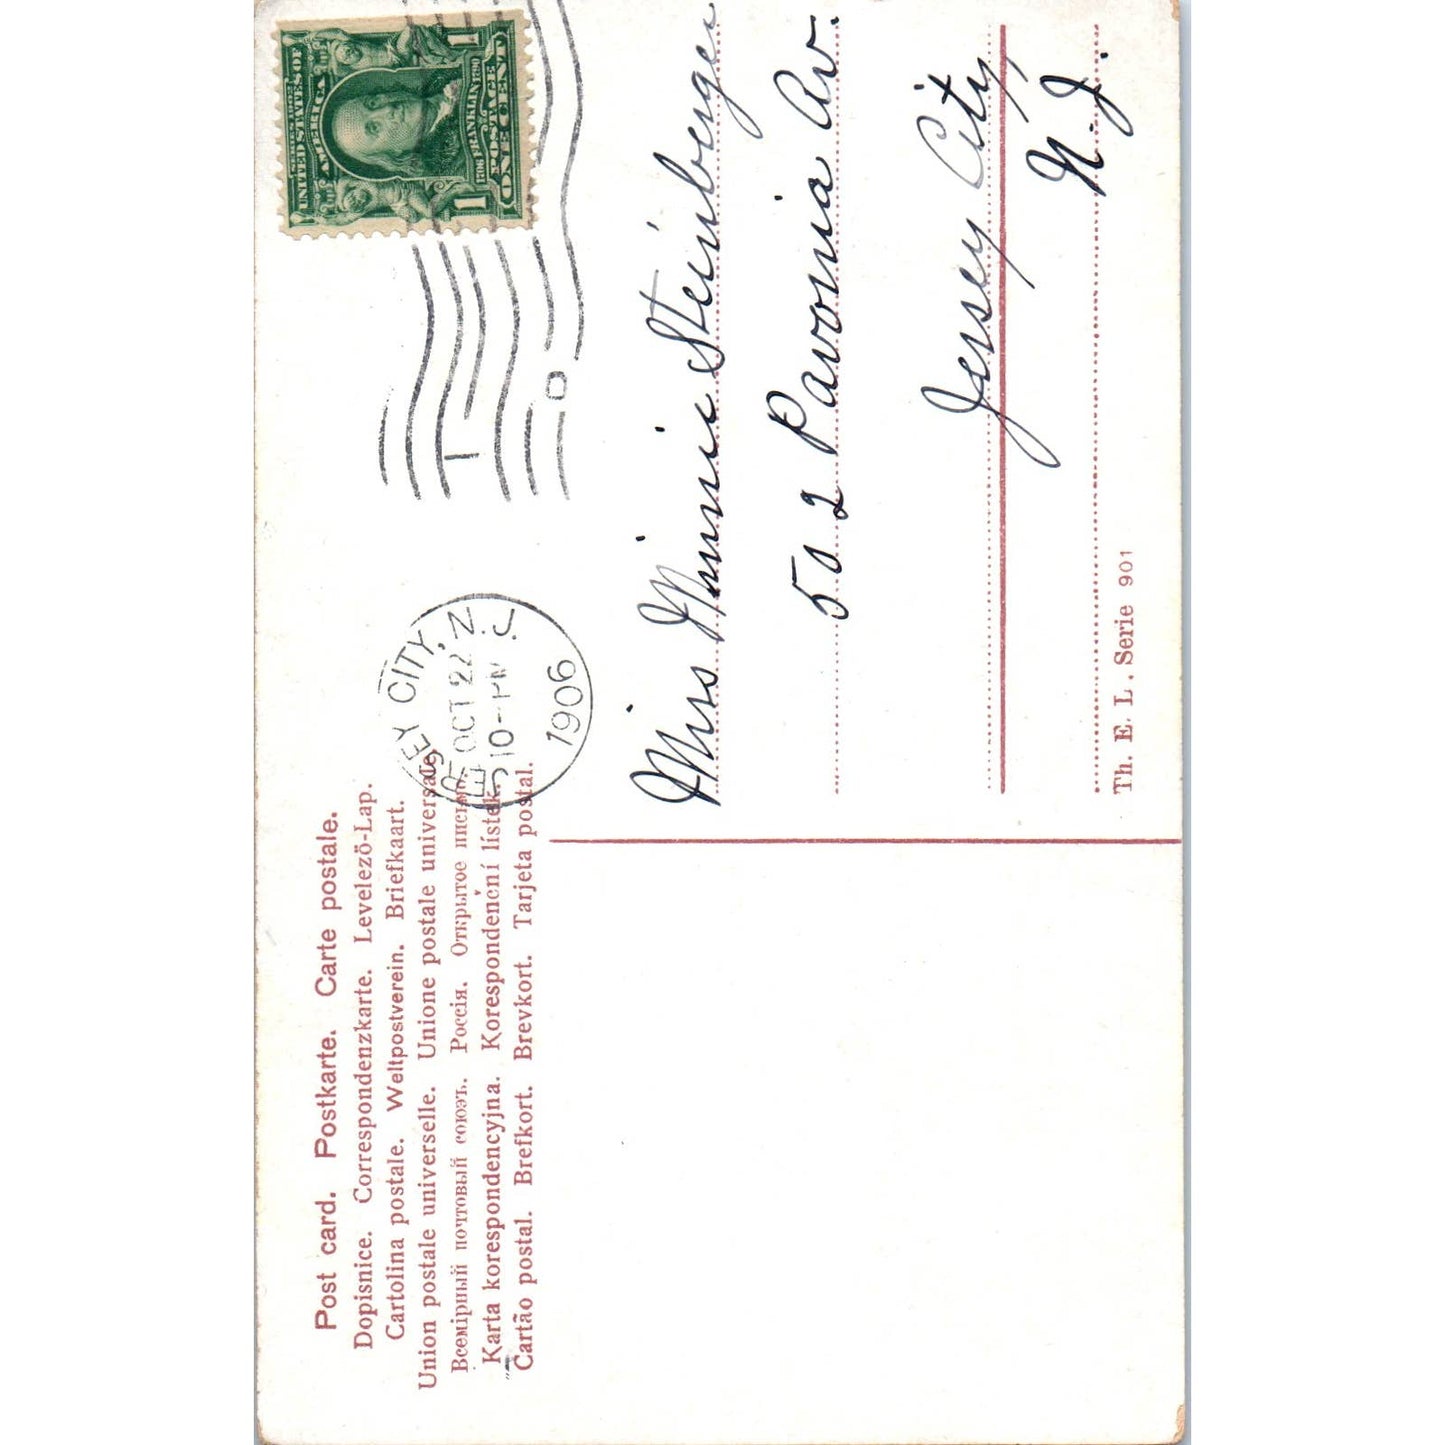 Post card. Postkarte. Carte postale.
Dopisnice. Correspondenzkarte. Levelező-Lap.
Cartolina postale. Weltpostverein. Briefkaart.
Union postale universelle. Unione postale universale.
Всемірный почтовый союзъ. Россія. Открытое письмо.
Karta korespondencyjna. Korespondenční lístek.
Cartão postal. Brefkort. Brevkort. Tarjeta postal.
JERSEY CITY, N.J.
OCT 22
10-PM
1906
SERIES 1902
UNITED STATES OF
AMERICA
1706 FRANKLIN 1790
POSTAGE
1 ONE CENT 1
Miss Minnie Steinberger
502 Pavonia Av.
Jersey City
N.J.
Th. E. L. Serie 901